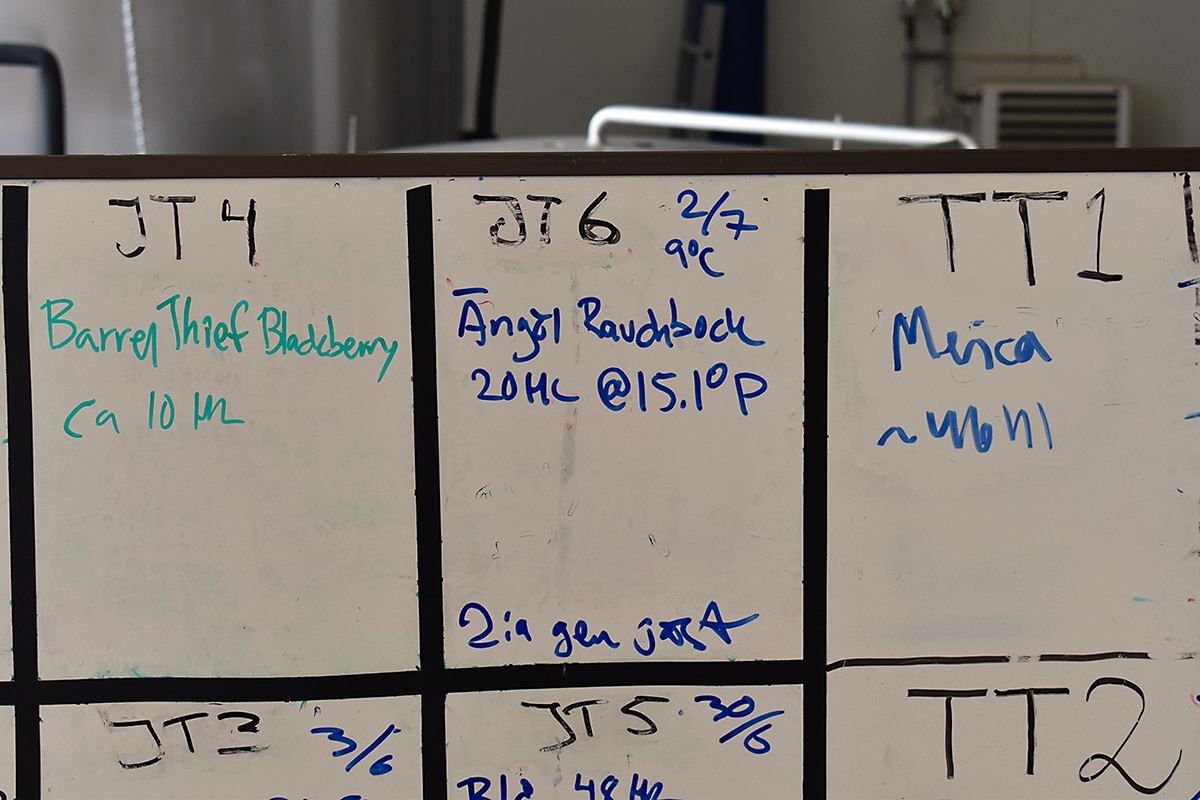 JT 4
Barrel Thief Blackberry
ca 10 HL
JT 6 2/7
9°C
Ängöl Rauchbock
20 HL @ 15.1°P
2:a gen jäst
TT1
Merica
~46 Hl
JT 3 3/6
JT 5 30/6
48 HL
TT2